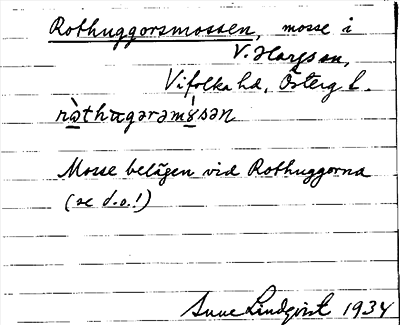 Rothuggorsmossen, mosse i
V. Harg sn,
Vifolka hd, Österg l.
rὼthɯgərəmɤ́sən
Mosse belägen vid Rothuggorna
(se d.o.!)
Sune Lindqvist 1934